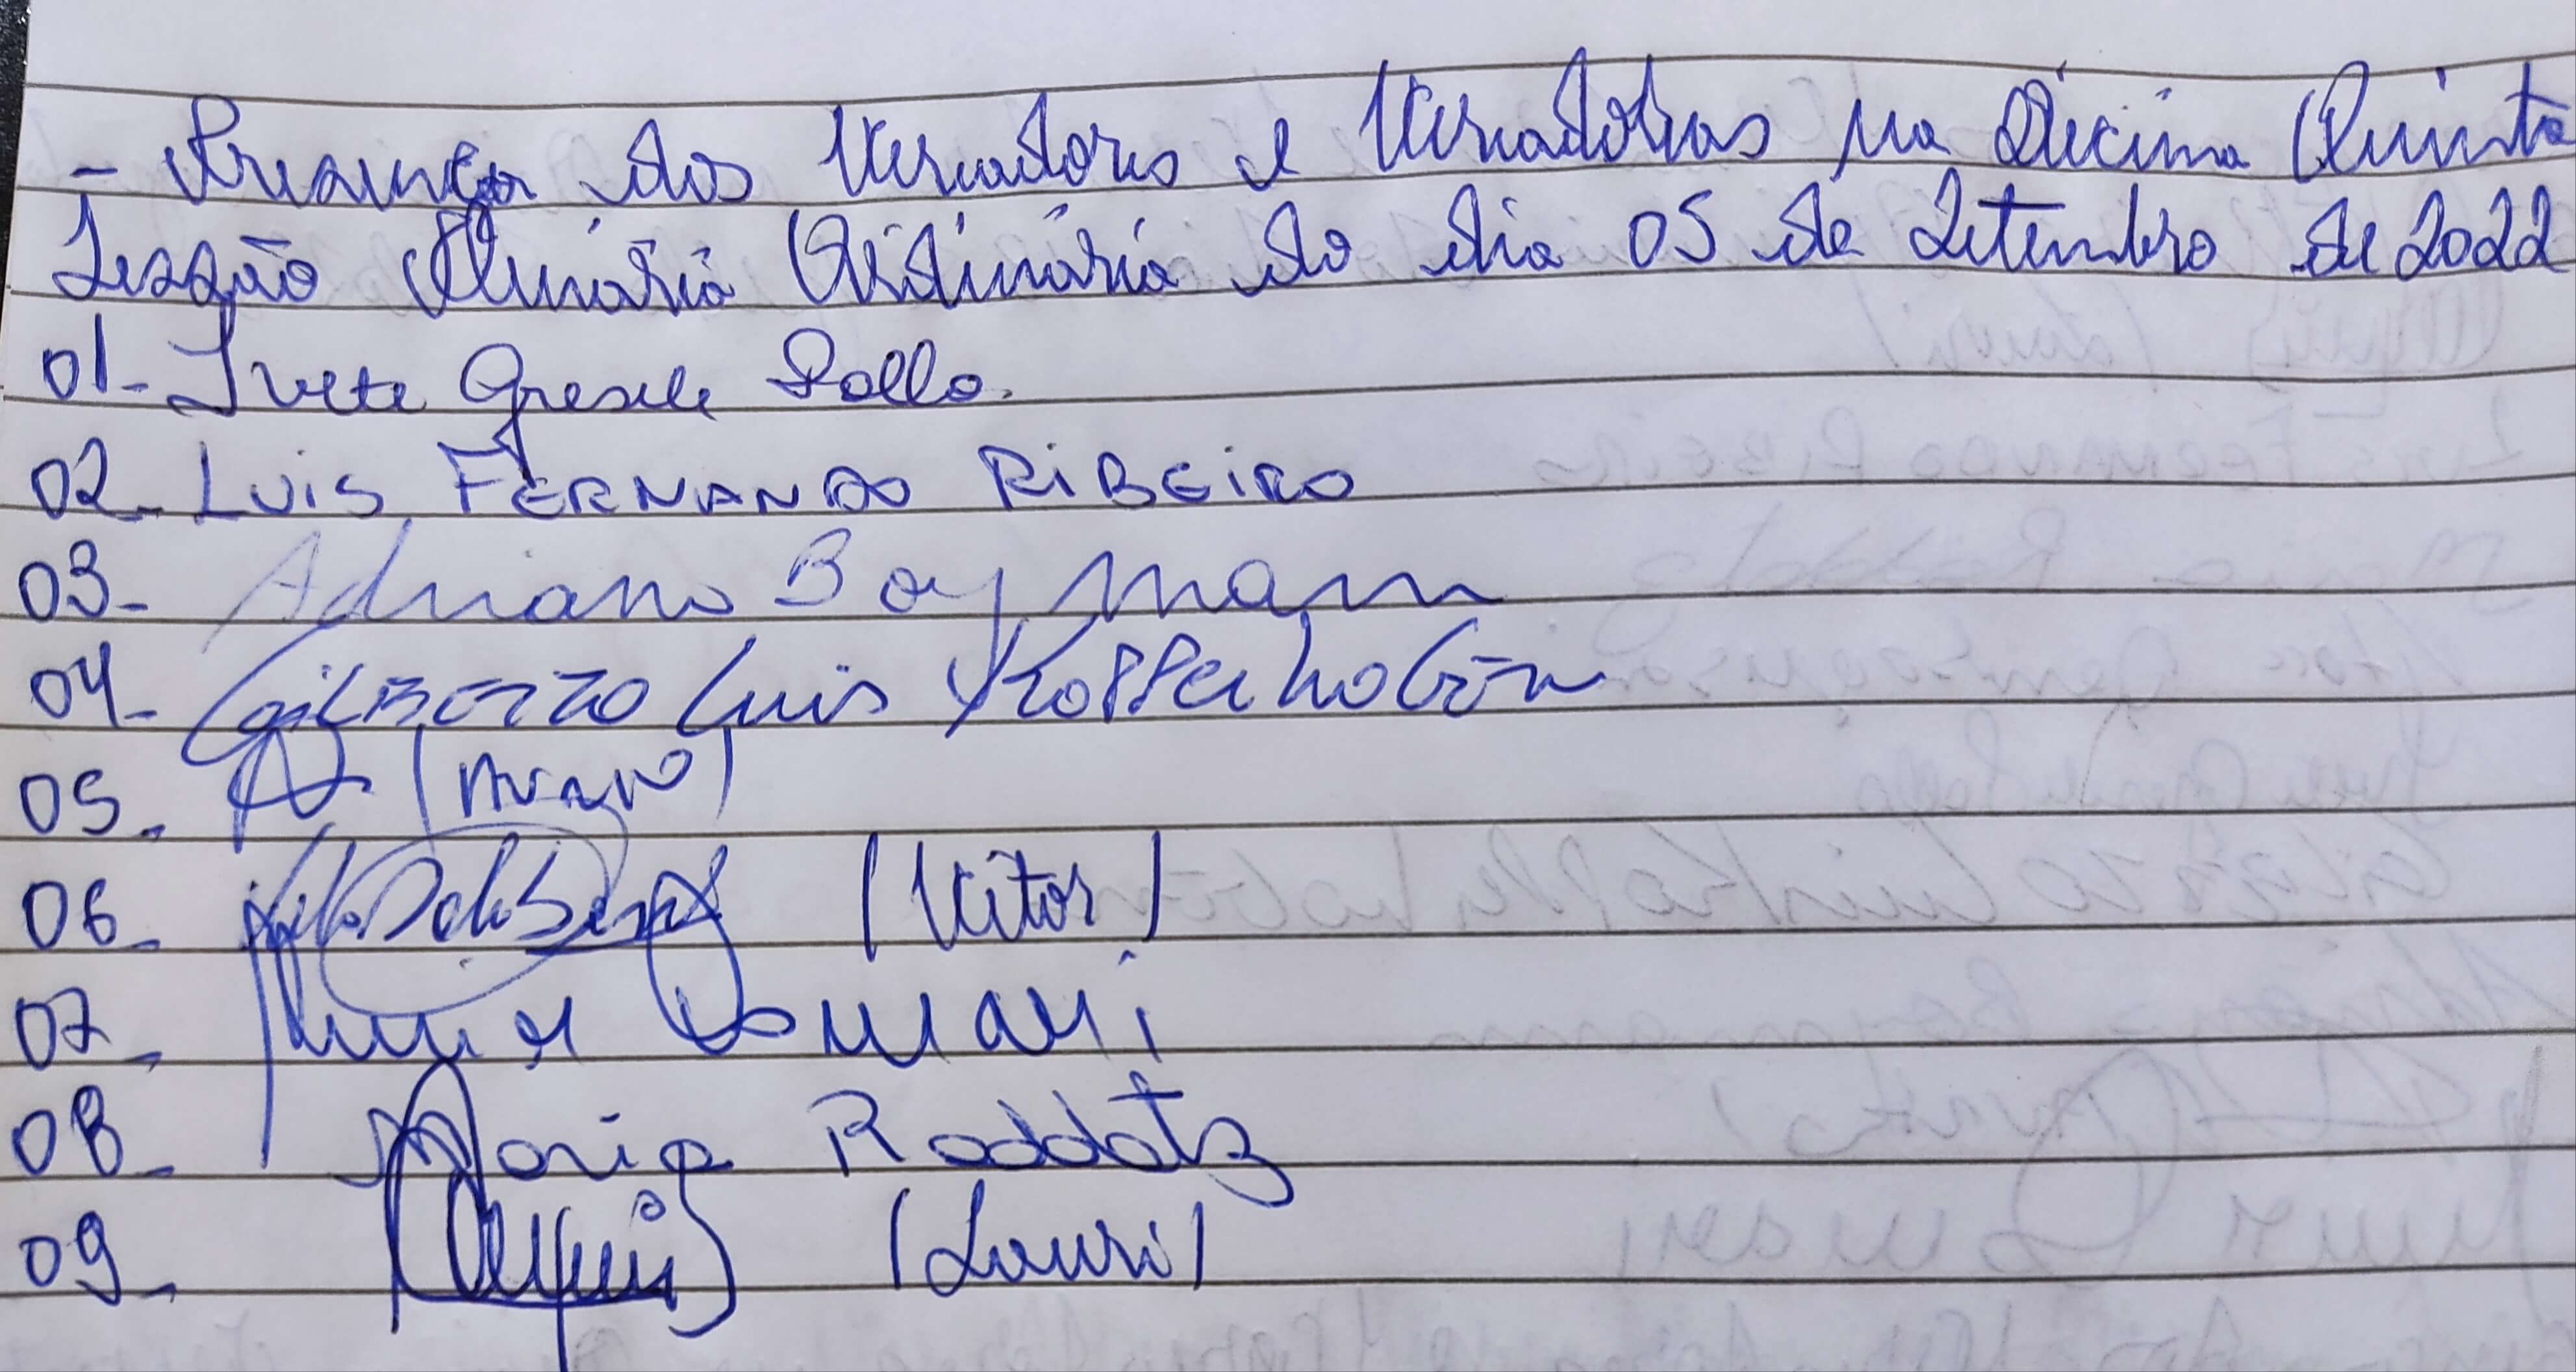 - Presença dos Vereadores e Vereadoras na Décima Quinta
Sessão Plenária Ordinária do dia 05 de Setembro de 2022
01- Ivete Gresele Pollo.
02- LUIS FERNANDO RIBEIRO
03- Adriano Boymann
04- GILBERTO Luis
05-
06- (Vitor)
07-
08- Maria Raddatz
09- (Lauri)